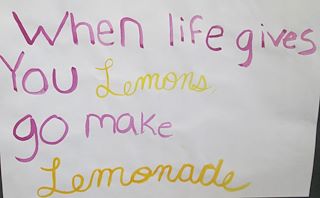 When life gives
You Lemons
go make
Lemonade